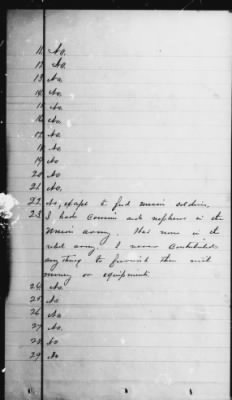 11 No.
12 No.
13 No.
14 No.
15 No.
16 No.
17 No.
18 No.
19 No
20 No
21 No.
22 No, except to feed union soldiers.
23 I had cousins and nephews in the
Union army. Had none in the
rebel army. I never contributed
any thing to furnish them with
money or equipment.
24 No.
25 No
26 No
27 No.
28 No
29 No